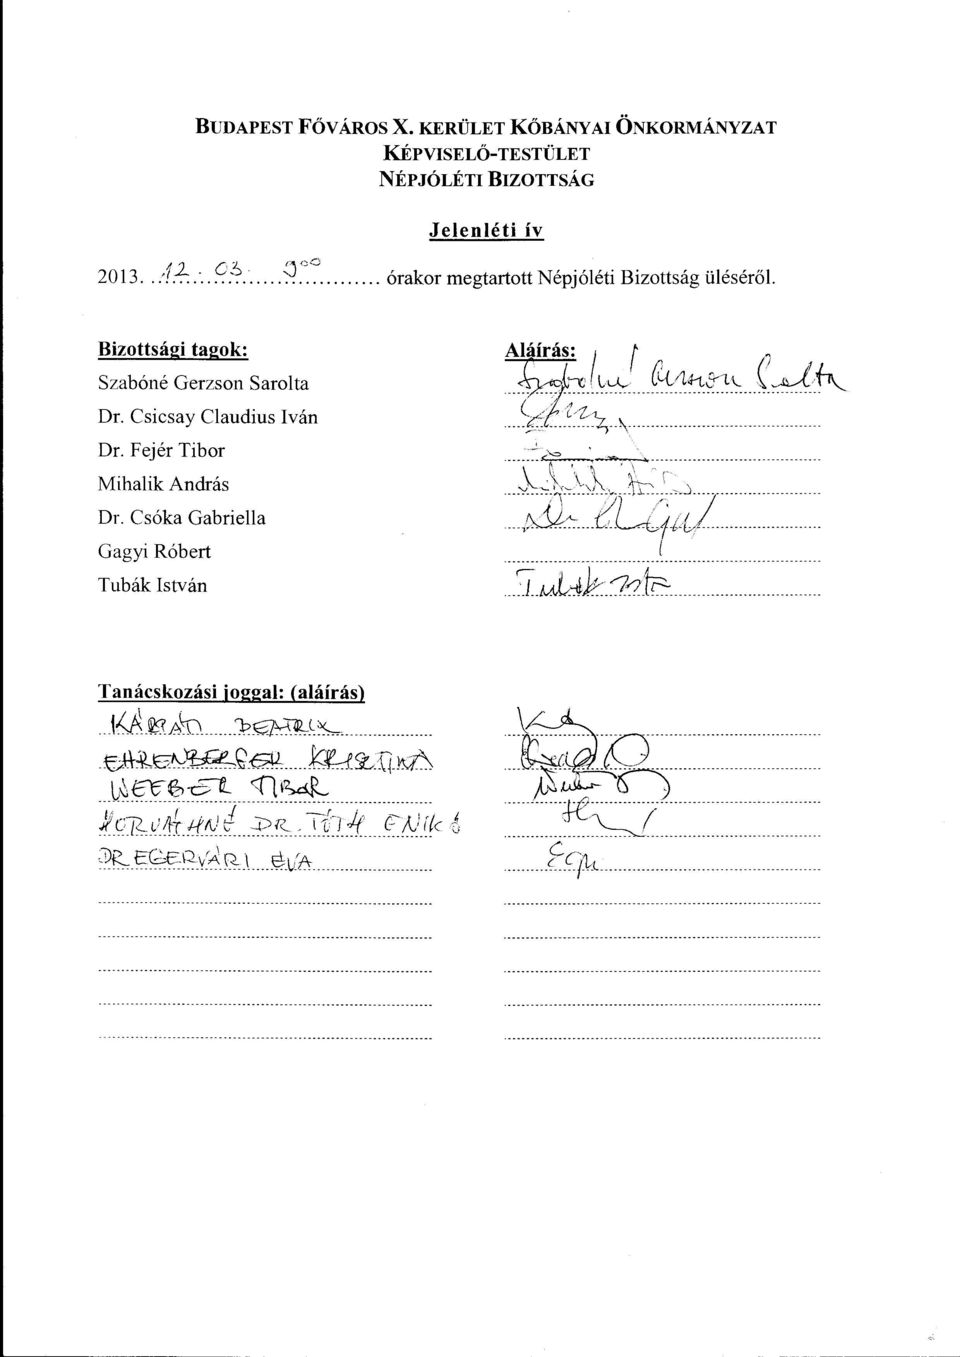 BUDAPEST FŐVÁROS X. KERÜLET KŐBÁNYAI ÖNKORMÁNYZAT
KÉPVISELŐ-TESTÜLET
NÉPJÓLÉTI BIZOTTSÁG
Jelenléti ív
2013. 12. 03. 9 00 órakor megtartott Népjóléti Bizottság üléséről.
Bizottsági tagok: Aláírás:
Szabóné Gerzson Sarolta
Dr. Csicsay Claudius Iván
Dr. Fejér Tibor
Mihalik András
Dr. Csóka Gabriella
Gagyi Róbert
Tubák István
Tanácskozási joggal: (aláírás)
KÁRPÁTI BEATRIX
EHRENBERGER KRISZTINA
WEEBER TIBOR
HORVÁTHNÉ DR. TÓTH ENIKŐ
DR EGERVÁRI ÉVA